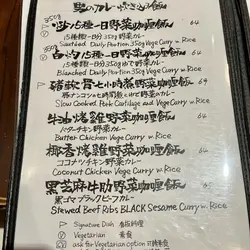 野のカレー 炊きこみ飯
350g 炒15種一日野菜咖喱飯 64
15種類一日分350g野菜カレー
Sautéed Daily Portion 350g Vege Curry w. Rice
350g 白灼15種一日野菜咖喱飯 64
15種類一日分350g野菜カレー
Blanched Daily Portion 350g Vege Curry w. Rice
豬軟骨七小時煮野菜咖喱飯 64
Slow Cooked Pork Cartilage and Vege Curry w. Rice
牛油燒雞野菜咖喱飯 64
バターチキン野菜カレー
Butter Chicken Vege Curry w. Rice
椰香燒雞野菜咖喱飯 64
ココナツチキン野菜カレー
Coconut Chicken Vege Curry w. Rice
黑芝麻牛肋野菜咖喱飯 64
黒ゴマブラックビーフカレー
Stewed Beef Ribs BLACK Sesame Curry w. Rice
Signature Dish 招牌料理
Vegetarian 素食
ask for Vegetarian option 可轉素食